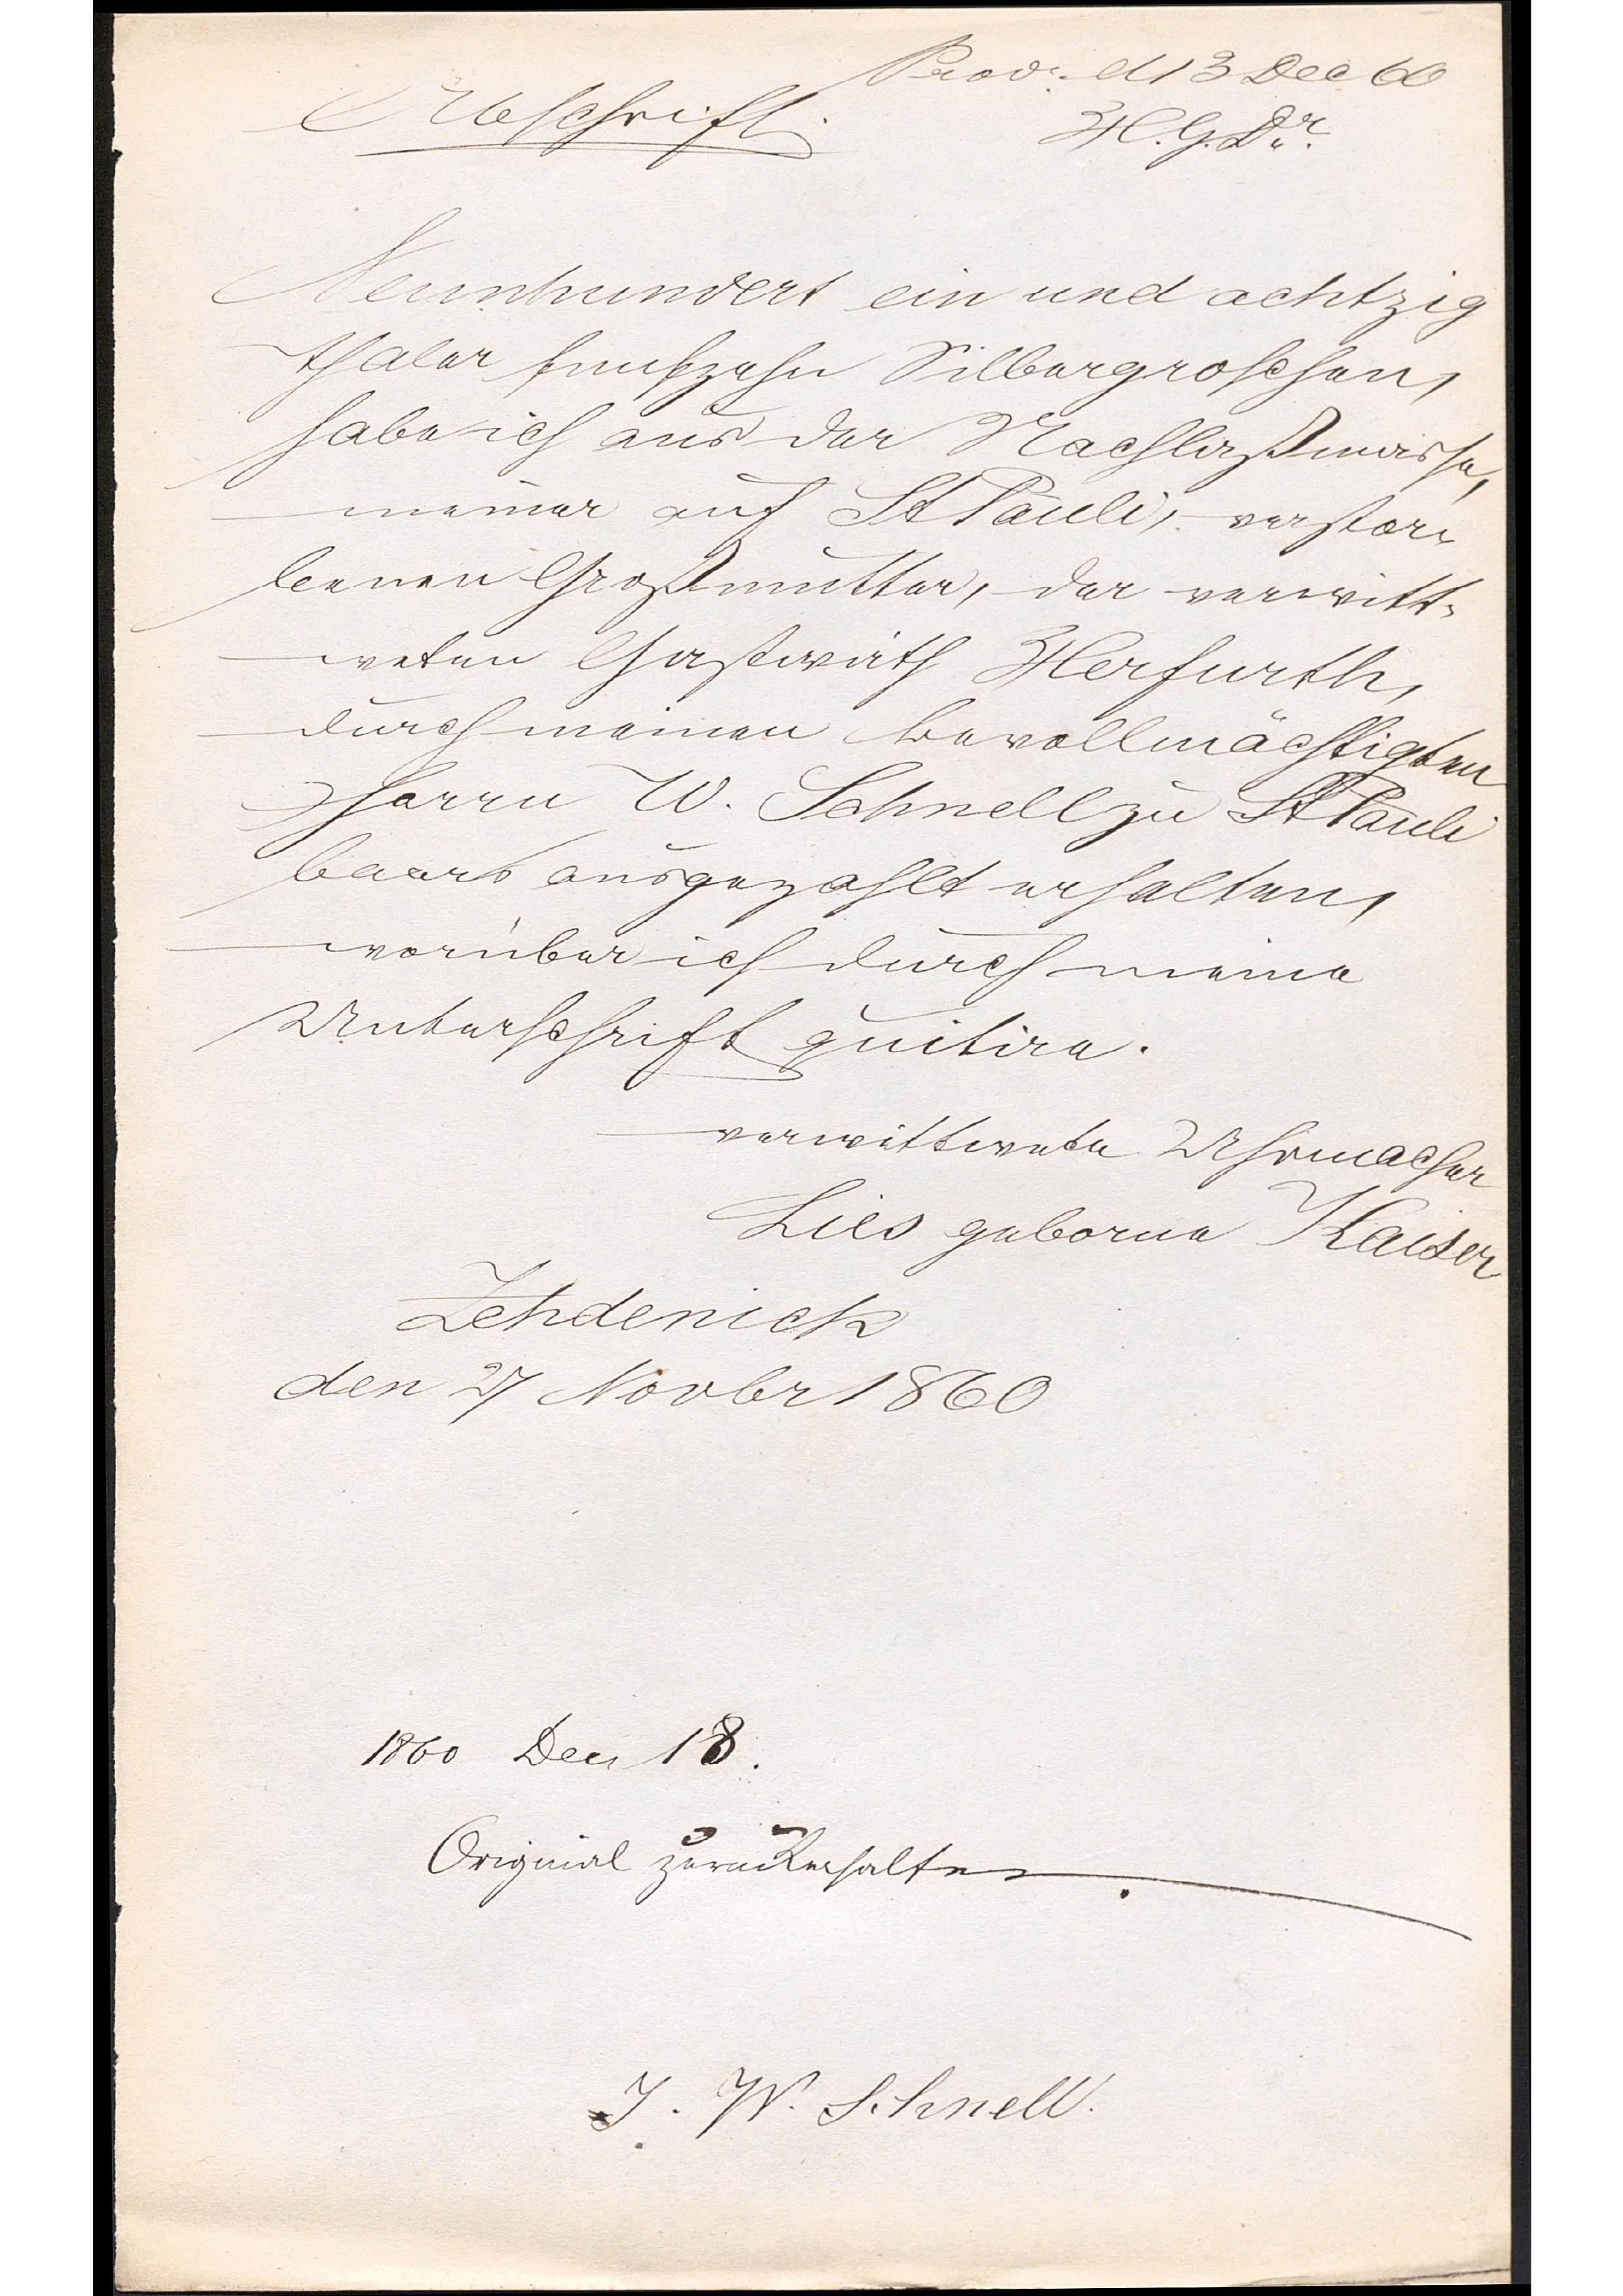 Prod. d 13 Dec 60
Abschrift.
H. G. Dr.
Neunhundert ein und achtzig
thaler funfzehn Silbergroschen,
habe ich aus der Nachlaßmasse,
meiner auf St Pauli, verstor-
benen Großmutter, der verwitt-
weten Gastwirth Herfurth,
durch meinen bevollmächtigten
Herrn W. Schnell zu St Pauli
baar ausgezahlt erhalten,
worüber ich durch meine
Unterschrift quitire.
verwittwete Uhrmacher
Lies geborne Kaiser
Zehdenick
den 27 Novbr 1860
1860 Dec 18.
Original zurückerhalten.
J. W. Schnell.